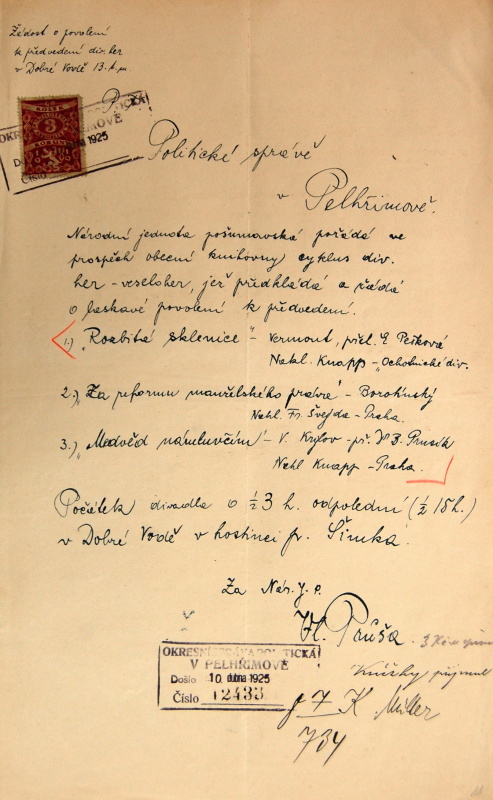 Žádost o povolení
k předvedení div. her
v Dobré Vodě 13. t. m.
3
OKRESNÍ
POLITICKÁ
V PELHŘIMOVĚ
dubna 1925
Číslo
Politické správě
v Pelhřimově.
Národní jednota pošumavská pořádá ve
prospěch obecní knihovny cyklus div.
her - veseloher, jež předkládá a žádá
o laskavé povolení k předvedení.
1.) „Rozbitá sklenice" - Vermont, přel. E Pešková
Nakl. Knapp - „Ochotnické div.
2.) „Za reformu manželského práva" - Borohúský
Nakl. Fr. Švejda - Praha.
3.) „Medvěd námluvčím" - V. Krylov - př. V B. Prusík
Nakl Knapp - Praha.
Počátek divadla o ½ 3 h. odpolední (½ 15 h.)
v Dobré Vodě v hostinci p. Šimka.
Za Nár. J. P.
Vl. Průša.
OKRESNÍ SPRÁVA POLITICKÁ
V PELHŘIMOVĚ
Došlo 10. dubna 1925
Číslo 12433
3 Kč
Knížky přijmul
K. Müller
734